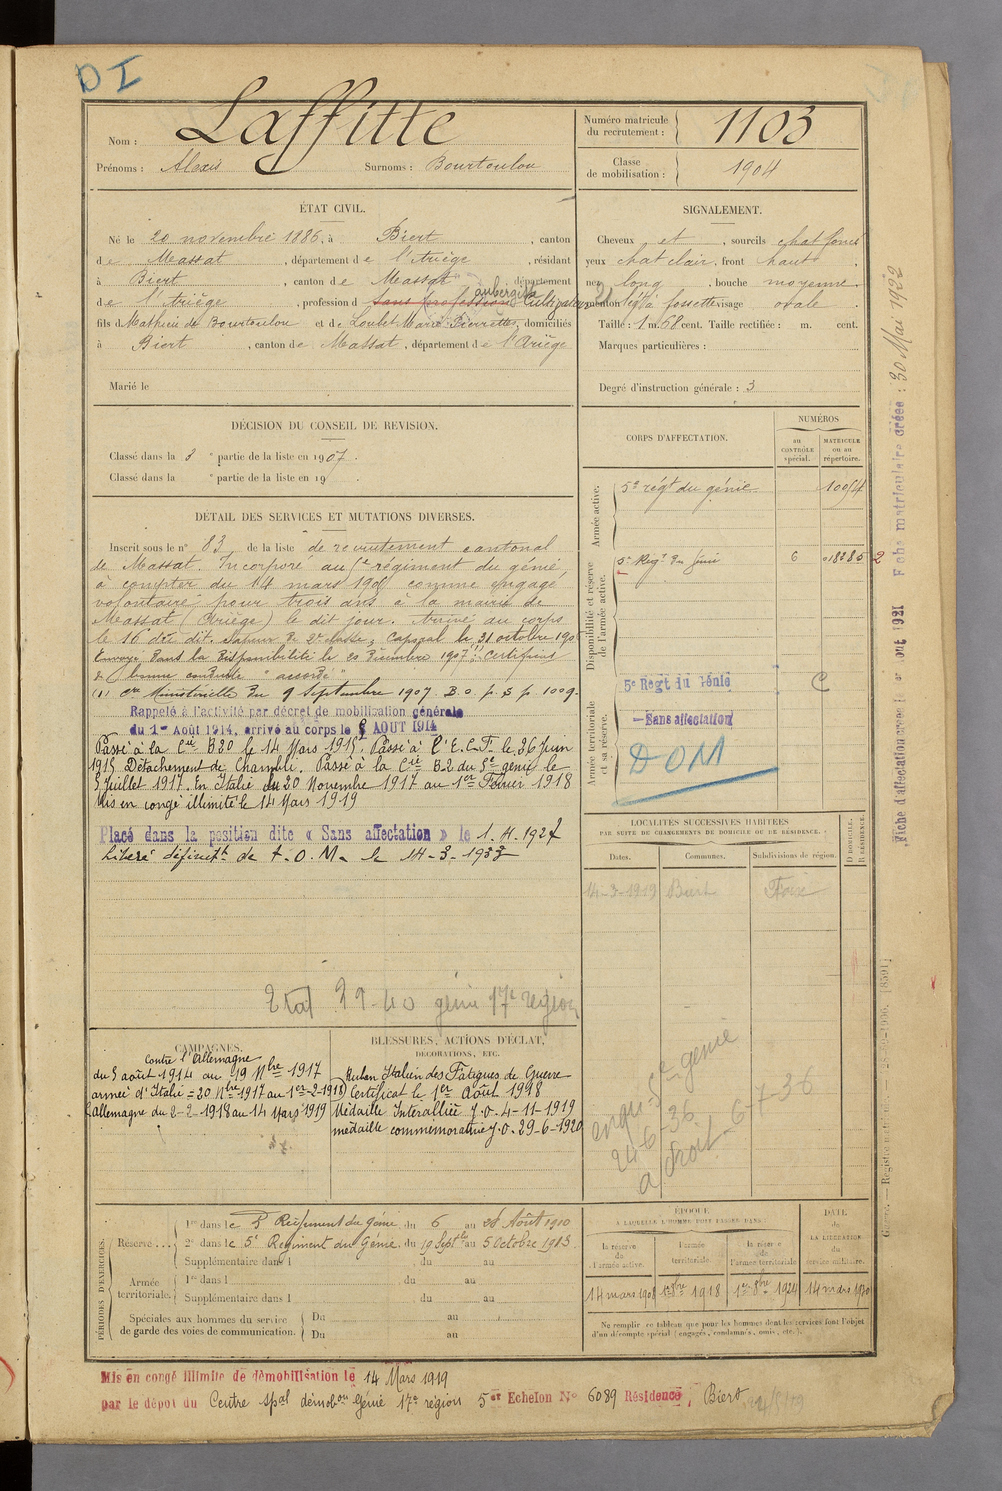 DI
Nom : Laffitte
Prénoms : Alexis Surnoms : Bourtoulou
Numéro matricule du recrutement : 1103
Classe de mobilisation : 1904
ÉTAT CIVIL.
Né le 20 novembre 1886, à Biert, canton
de Massat, département de l'Ariège, résidant
à Biert, canton de Massat, département
de l'Ariège, profession d sans profession Cultivateur aubergiste
fils d Mathieu de Bourtoulou et de Loubet Marie Pierrette, domiciliés
à Biert, canton de Massat, département de l'Ariège
Marié le
SIGNALEMENT.
Cheveux et, sourcils chat foncé
yeux chat clair, front haut
nez long, bouche moyenne
menton à fossette visage ovale
Taille : 1 m. 68 cent. Taille rectifiée : m. cent.
Marques particulières :
Degré d'instruction générale : 3
DÉCISION DU CONSEIL DE REVISION.
Classé dans la 3 e partie de la liste en 1907.
Classé dans la e partie de la liste en 19 .
DÉTAIL DES SERVICES ET MUTATIONS DIVERSES.
Inscrit sous le n° 83 de la liste de recrutement cantonal
de Massat. Incorporé au 5e régiment du génie,
à compter du 14 mars 1905 comme engagé
volontaire pour trois ans à la mairie de
Massat (Ariège) le dit jour. Arrivé au corps
le 16 du dit. Sapeur de 2e classe, Caporal le 31 octobre 190
Envoyé dans la disponibilité le 20 Décembre 1907 (1) Certificat
de bonne conduite "accordé"
(1) Con Ministérielle du 9 Septembre 1907. B.O. p. s p 1009.
Rappelé à l'activité par décret de mobilisation générale
du 1er Août 1914, arrivé au corps le 5 AOUT 1914
Passé à la Cie B20 le 14 Mars 1915. Passé à l'E.C.F. le 26 Juin
1915 Détachement de Chambli. Passé à la Cie B-2 du 5e génie le
5 Juillet 1917. En Italie du 20 Novembre 1917 au 1er Février 1918
Mis en congé illimité le 14 Mars 1919
Placé dans la position dite « Sans affectation » le 1.4.1927
Libéré définitt de t.O.M. le 14-3-1933
Etat 39-40 génie 17e région
CORPS D'AFFECTATION.
NUMÉROS
au CONTRÔLE spécial.
MATRICULE ou au répertoire.
Armée active.
5e régt du génie 10054
Disponibilité et réserve de l'armée active.
5e Regt du Génie 6 018285 2
Armée territoriale et sa réserve.
5e Regt du Génie C
Sans affectation
DOM
LOCALITÉS SUCCESSIVES HABITÉES
PAR SUITE DE CHANGEMENTS DE DOMICILE OU DE RÉSIDENCE.
Dates. Communes. Subdivisions de région. D DOMICILE. R RÉSIDENCE.
14-3-1919 Biert Foix
5e génie
24-6-36
a droit 6-7-36
CAMPAGNES.
Contre l'Allemagne
du 5 août 1914 au 19 Nbre 1917
armée d'Italie = 20 Nbre 1917 au 1er-2-1918
Allemagne du 2-2-1918 au 14 Mars 1919
BLESSURES, ACTIONS D'ÉCLAT,
DÉCORATIONS, ETC.
Ruban Italien des Fatigues de Guerre
Certificat le 1er Août 1918
Médaille Interalliée J.O. 4-11-1919
médaille commémorative J.O. 29-6-1920
PÉRIODES D'EXERCICES.
Réserve...
1re dans le 5e Régiment du Génie, du 6 au 28 Août 1910
2e dans le 5e Regiment du Génie, du 19 Septbre au 5 Octobre 1913.
Supplémentaire dans l du au
Armée territoriale.
1re dans l du au
Supplémentaire dans l du au
Spéciales aux hommes du service de garde des voies de communication.
Du au
Du au
ÉPOQUE
À LAQUELLE L'HOMME DOIT PASSER DANS :
la réserve de l'armée active.
l'armée territoriale.
la réserve de l'armée territoriale
DATE de LA LIBÉRATION du service militaire.
14 mars 1908 1er 8bre 1918 1er 8bre 1924 14 mars 1930
Ne remplir ce tableau que pour les hommes dont les services font l'objet
d'un décompte spécial (engagés, condamnés, omis, etc.).
Mis en congé illimité de démobilisation le 14 Mars 1919
par le dépôt du Centre spal démobon Génie 17e région 5er Echelon No 6089 Résidence, Biert
Fiche matriculaire créée : 30 Mai 1922